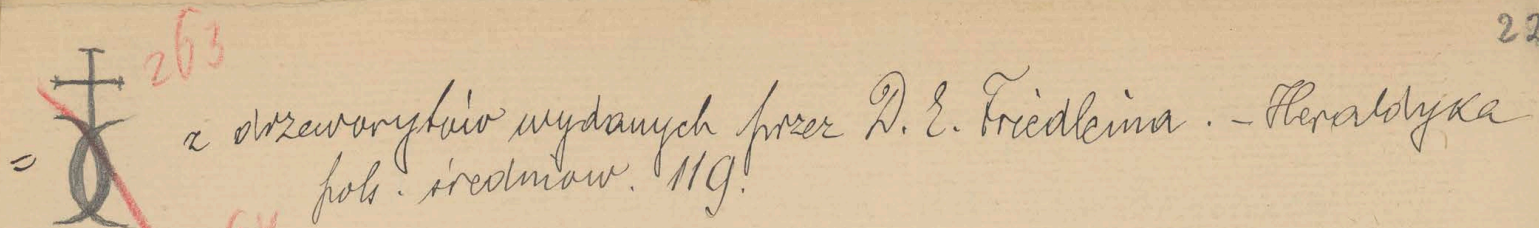 263
22
z drzeworytów wydanych przez D. E. Friedleina. - Heraldyka
pols. średniow. 119.